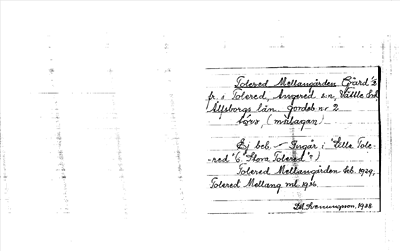 Tolered Mellangården Gård
fr. i Tolered, Angered sn, Vättle hd,
Älfsborgs län. Jordeb. nr 2
Ej beb. – Ingår i "Lilla Tole-
red" o. "Stora Tolered"?)
Tolered Mellangården beb. 1929,
Tolered Mellang ml. 1936.
1938